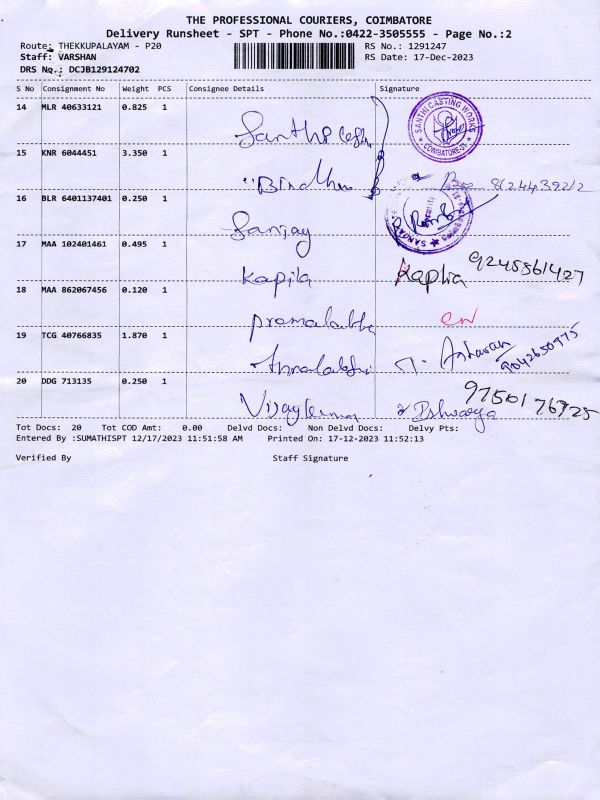 THE PROFESSIONAL COURIERS, COIMBATORE
Delivery Runsheet - SPT - Phone No.:0422-3505555 - Page No.:2
Route: THEKKUPALAYAM - P20 RS No.: 1291247
Staff: VARSHAN RS Date: 17-Dec-2023
DRS No.: DCJB129124702
S No Consignment No Weight PCS Consignee Details Signature
14 MLR 40633121 0.825 1
SANTHI CASTING WORKS
COIMBATORE-31
15 KNR 6044451 3.350 1
Bindhu
16 BLR 6401137401 0.250 1
Sanjay
17 MAA 102401461 0.495 1
Kapila Kapila 9245561427
18 MAA 862067456 0.120 1
19 TCG 40766835 1.870 1
9042650975
20 DDG 713135 0.250 1
Vijayakumar Ishwarya
Tot Docs: 20 Tot COD Amt: 0.00 Delvd Docs: Non Delvd Docs: Delvy Pts:
Entered By :SUMATHISPT 12/17/2023 11:51:58 AM Printed On: 17-12-2023 11:52:13
Verified By Staff Signature